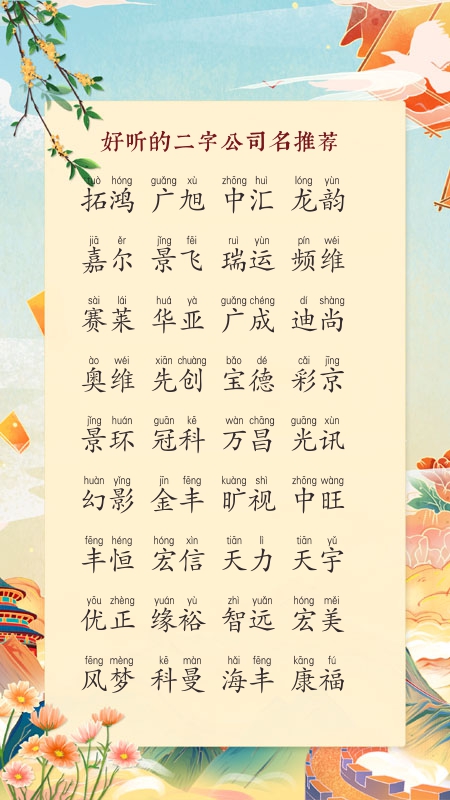 好听的二字公司名推荐
tuò hóng guǎng xù zhōng huì lóng yùn
拓鸿 广旭 中汇 龙韵
jiā ěr jǐng fēi ruì yùn pín wéi
嘉尔 景飞 瑞运 频维
sài lái huá yà guǎng chéng dí shàng
赛莱 华亚 广成 迪尚
ào wéi xiān chuàng bǎo dé cǎi jīng
奥维 先创 宝德 彩京
jǐng huán guān kē wàn chāng guāng xùn
景环 冠科 万昌 光讯
huàn yǐng jīn fēng kuàng shì zhōng wàng
幻影 金丰 旷视 中旺
fēng héng hóng xìn tiān lì tiān yǔ
丰恒 宏信 天力 天宇
yōu zhèng yuán yù zhì yuǎn hóng měi
优正 缘裕 智远 宏美
fēng mèng kē màn hǎi fēng kāng fú
风梦 科曼 海丰 康福